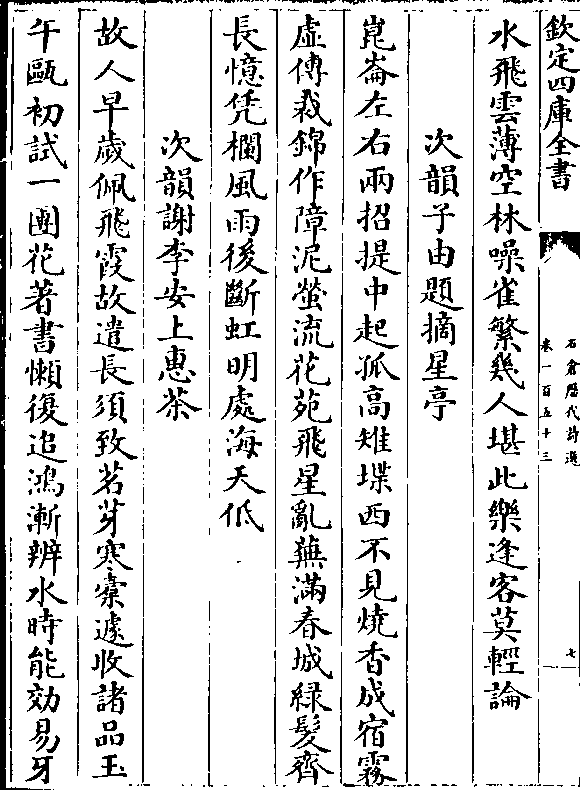 欽定四庫全書
石倉歷代詩選
卷一百五十三
七
水飛雲薄空林噪雀繁幾人堪此樂逢客莫輕論
次韻子由題摘星亭
崑崙左右兩招提中起孤高雉堞西不見燒香成宿霧
虛傳裁錦作障泥螢流花苑飛星亂蕪滿春城緑髮齊
長憶凭欄風雨後斷虹明處海天低
次韻謝李安上惠茶
故人早歲佩飛霞故遣長須致茗芽寒橐遽收諸品玉
午甌初試一團花著書懶復追鴻漸辨水時能効易牙